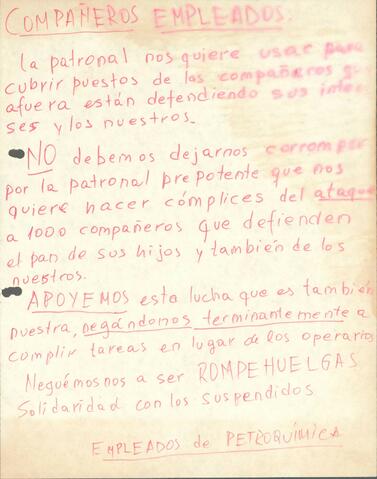 COMPAÑEROS EMPLEADOS:
La patronal nos quiere usar para
cubrir puestos de los compañeros que
afuera están defendiendo sus intere
ses y los nuestros.
NO debemos dejarnos corromper
por la patronal prepotente que nos
quiere hacer cómplices del ataque
a 1000 compañeros que defienden
el pan de sus hijos y también de los
nuestros.
APOYEMOS esta lucha que es también
nuestra, negándonos terminantemente a
cumplir tareas en lugar de los operarios
Neguémosnos a ser ROMPEHUELGAS
Solidaridad con los suspendidos
EMPLEADOS de PETROQUÍMICA